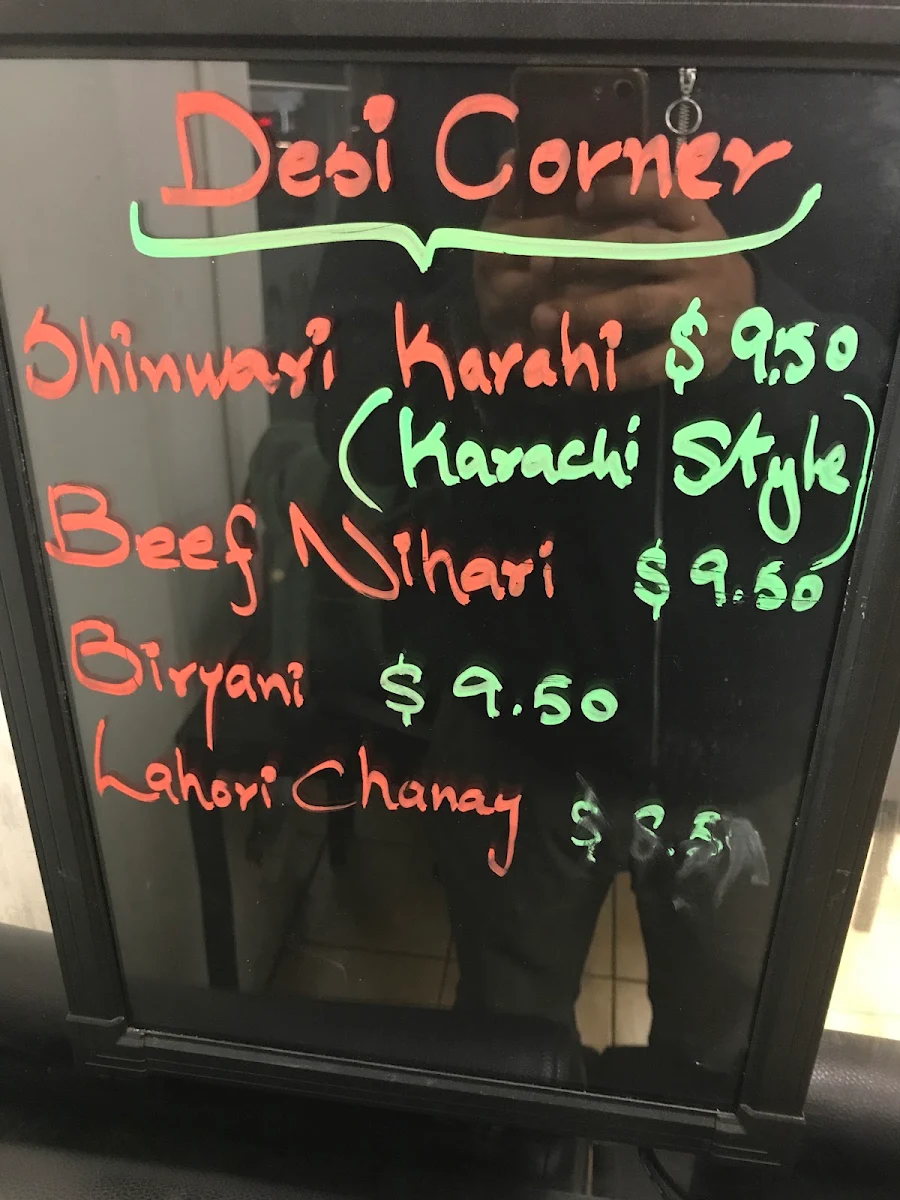 Desi Corner
Shinwari Karahi $ 9.50
(Karachi Style)
Beef Nihari $ 9.50
Biryani $ 9.50
Lahori Chanay $